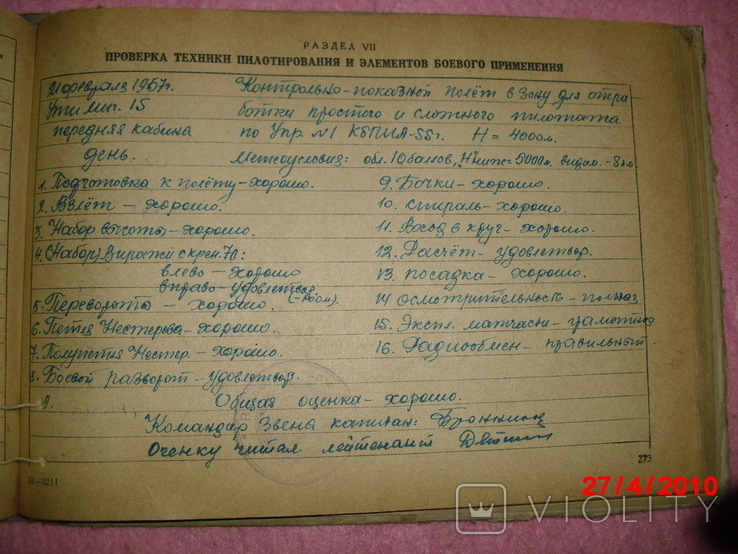 РАЗДЕЛ VII
ПРОВЕРКА ТЕХНИКИ ПИЛОТИРОВАНИЯ И ЭЛЕМЕНТОВ БОЕВОГО ПРИМЕНЕНИЯ
21 февраля 1957г. Контрольно-показной полёт в зону для отра-
Ути Миг. 15 ботки простого и сложного пилотажа
передняя кабина по Упр №1 КБПИА-55г. Н = 4000м.
День. Метеоусловия: обл. 10 баллов, "Н" нижн = 5000м. видим. -8км
1. Подготовка к полёту - хорошо.
2. Взлёт - хорошо.
3. Набор высоты - хорошо.
4. (Набор) Виражи с крен. 70:
влево - хорошо
вправо - удовлетвор.
5. Перевороты - хорошо.
6. Петля Нестерова - хорошо.
7. Полупетля Нестер. - хорошо.
8. Боевой разворот - удовлетвор.
9. Бочки - хорошо.
10. Спираль - хорошо.
11. Вход в круг - хорошо.
12. Расчёт - удовлетвор.
13. посадка - хорошо.
14 осмотрительность - полная
15. Экспл. матчасти - грамотная
16. Радиообмен - правильный.
Общая оценка - хорошо.
Командир Звена капитан:
Оценку читал лейтенант
273
27/4/2010
VIOLITY